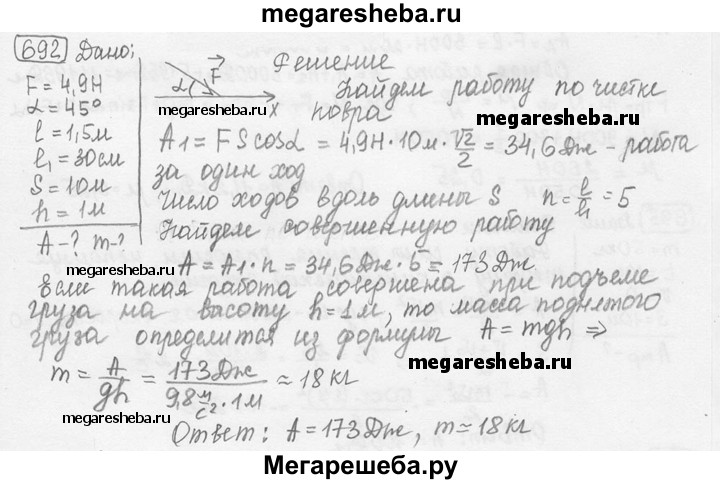 megaresheba.ru
692 Дано:
F = 4,9Н
α = 45°
l = 1,5м
l₁ = 30см
S = 10м
h = 1м
A - ? m - ?
Решение
α F
megaresheba.ru X
Найдем работу по чистке
ковра megaresheba.ru
A₁ = FScosα = 4,9Н·10м·√2/2 = 34,6Дж - работа
за один ход
Число ходов вдоль длины S n = l/l₁ = 5
Найдем совершенную работу
A = A₁·n = 34,6Дж·5 = 173Дж
megaresheba.ru
Если такая работа совершена при подъеме
груза на высоту h = 1м, то масса поднятого
груза определится из формулы A = mgh ⇒
megaresheba.ru
m = A/gh = 173Дж/9,8 м/с²·1м ≈ 18кг
megaresheba.ru
Ответ: A = 173Дж, m ≃ 18кг
Мегарешеба.ру